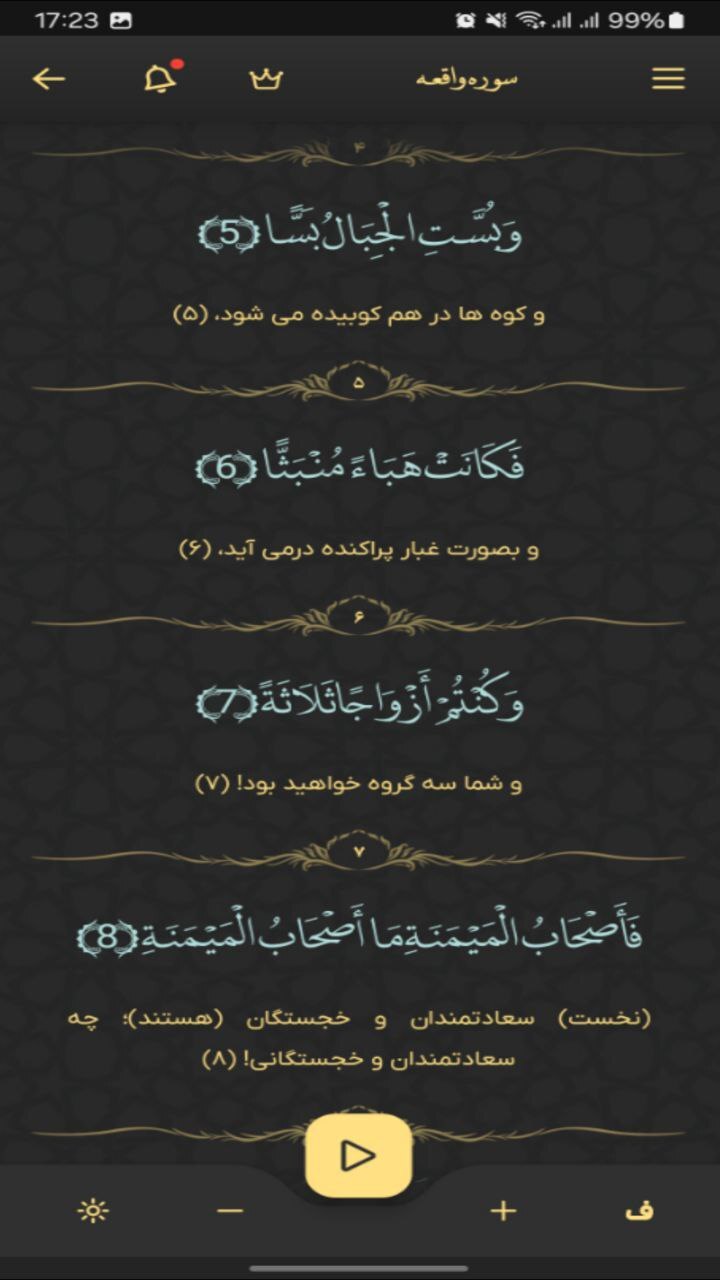 17:23 99%
سوره واقعه
۴
وَبُسَّتِ الْجِبَالُ بَسًّا (5)
و کوه ها در هم کوبیده می شود، (۵)
۵
فَكَانَتْ هَبَاءً مُنْبَثًّا (6)
و بصورت غبار پراکنده درمی آید، (۶)
۶
وَكُنْتُمْ أَزْوَاجًا ثَلَاثَةً (7)
و شما سه گروه خواهید بود! (۷)
۷
فَأَصْحَابُ الْمَيْمَنَةِ مَا أَصْحَابُ الْمَيْمَنَةِ (8)
(نخست) سعادتمندان و خجستگان (هستند)؛ چه
سعادتمندان و خجستگانی! (۸)
ف